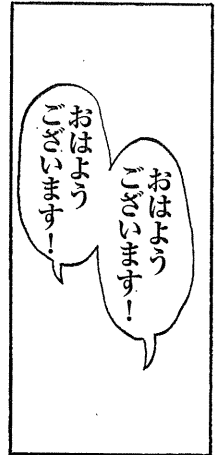 おはよう
ございます！
おはよう
ございます！